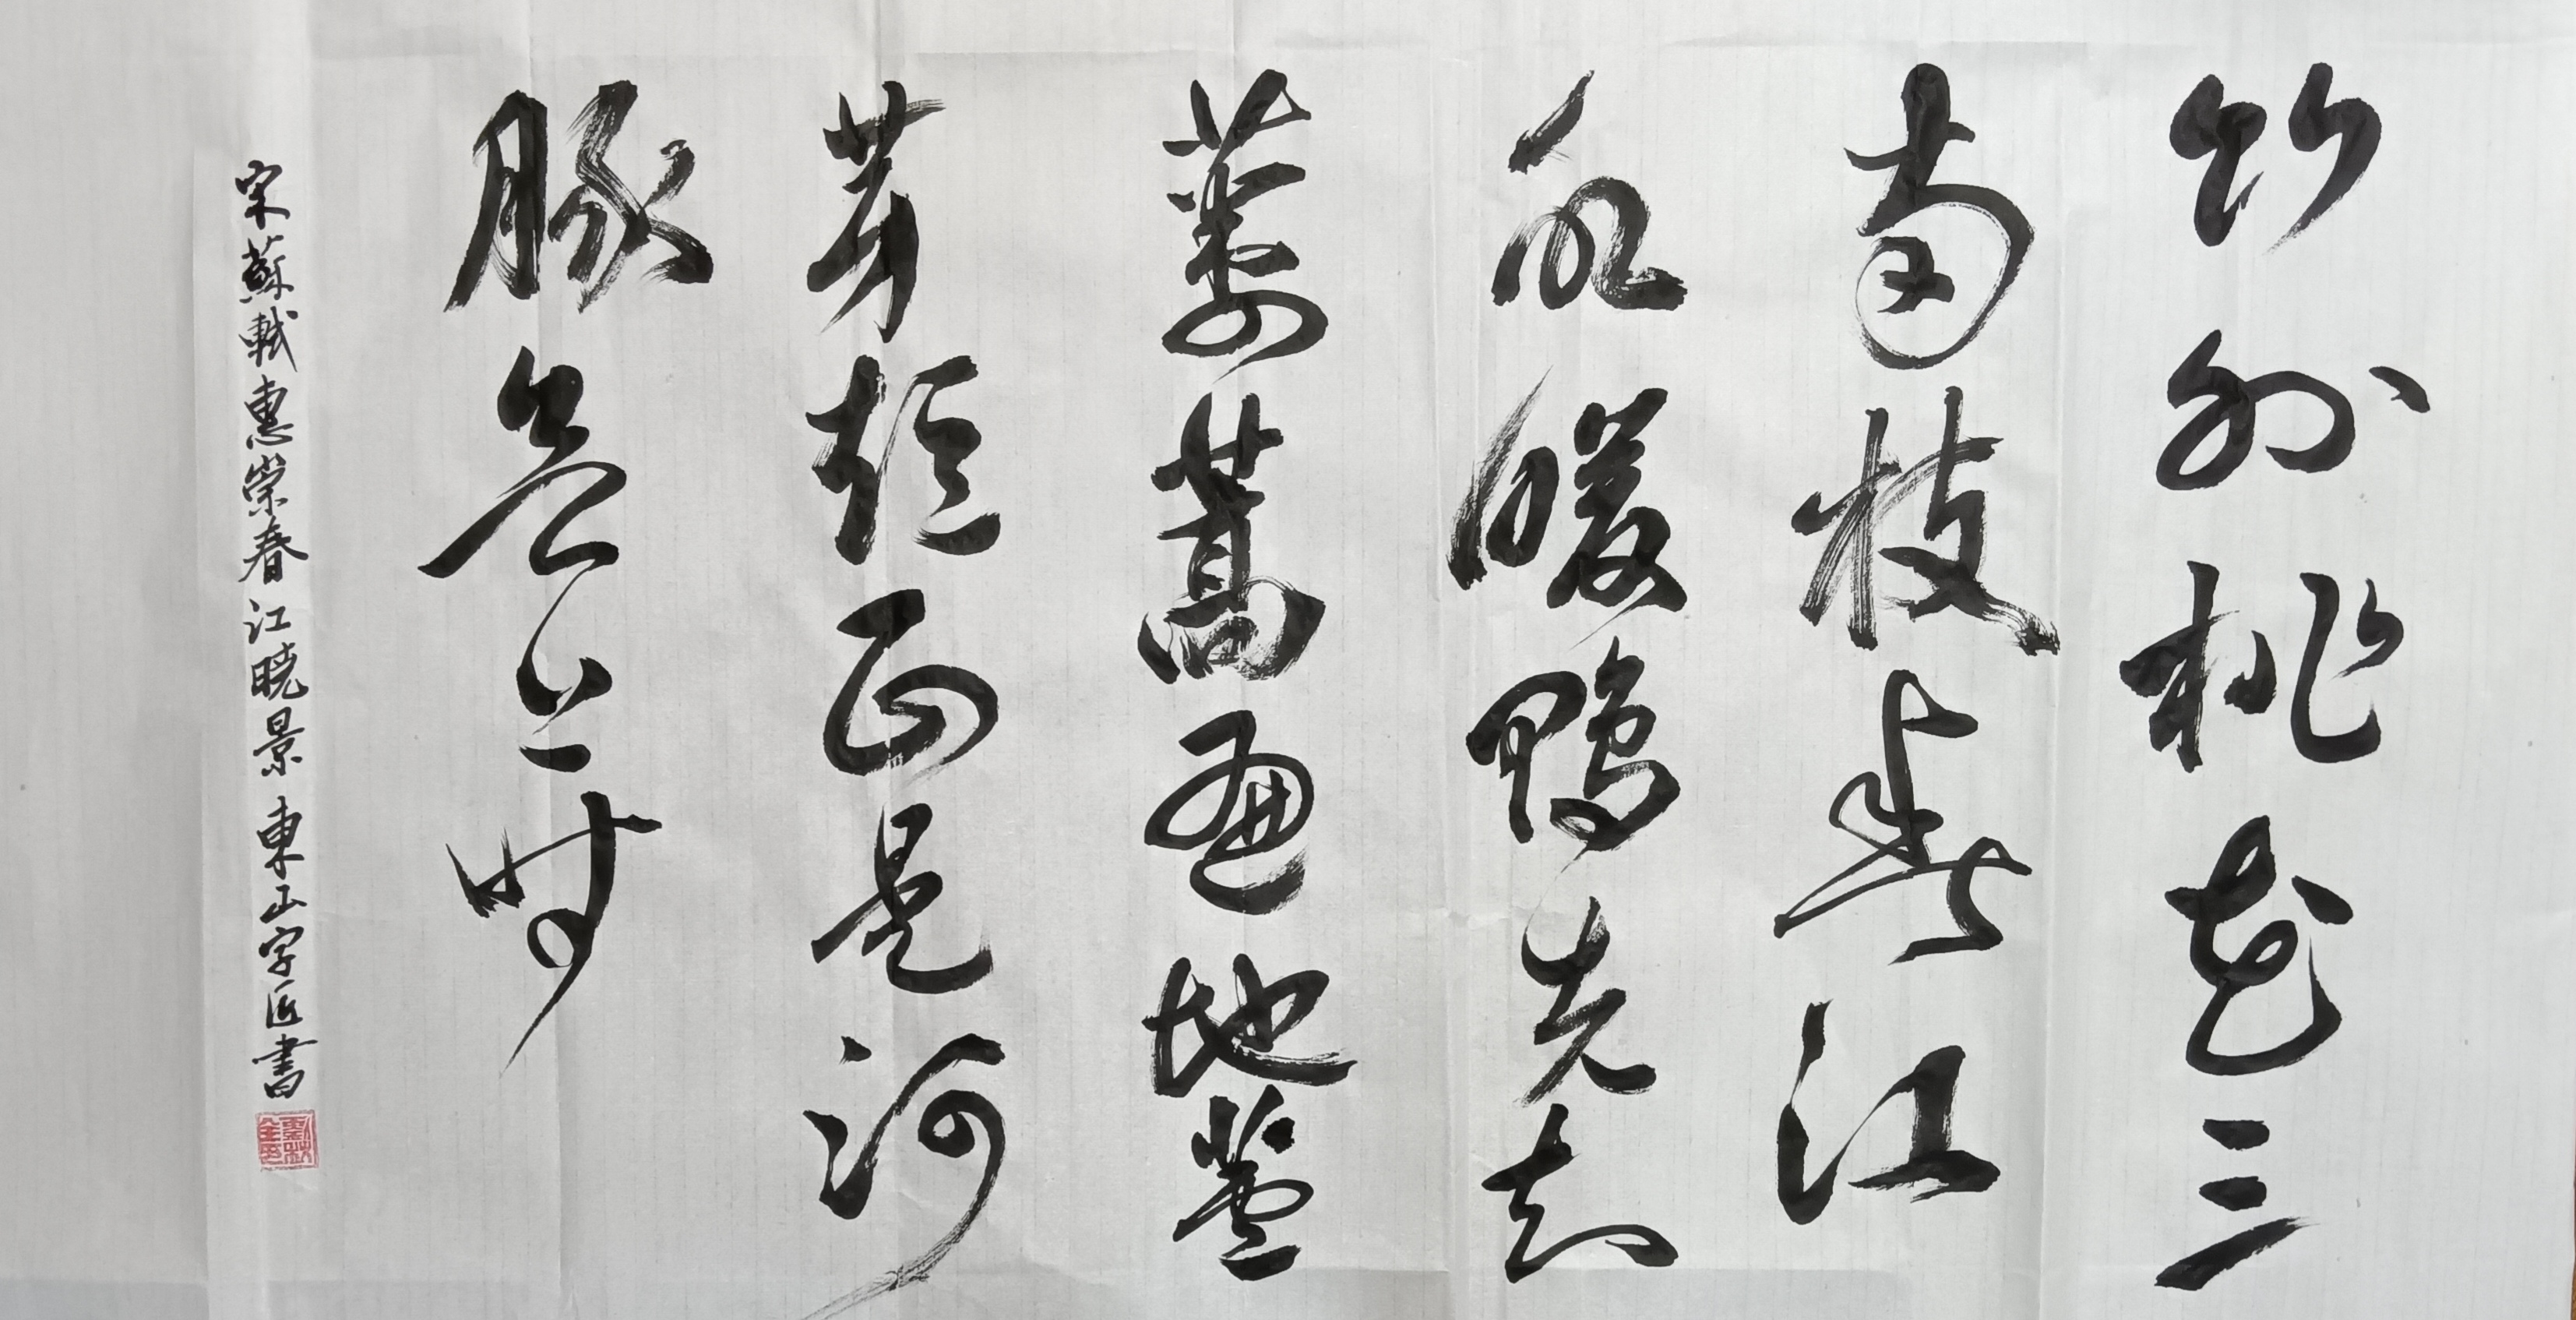 竹外桃花三
兩枝春江
水暖鴨先知
蔞蒿遍地蘆
芽短正是河
豚欲上時
宋蘇軾惠崇春江曉景 東山字匠書